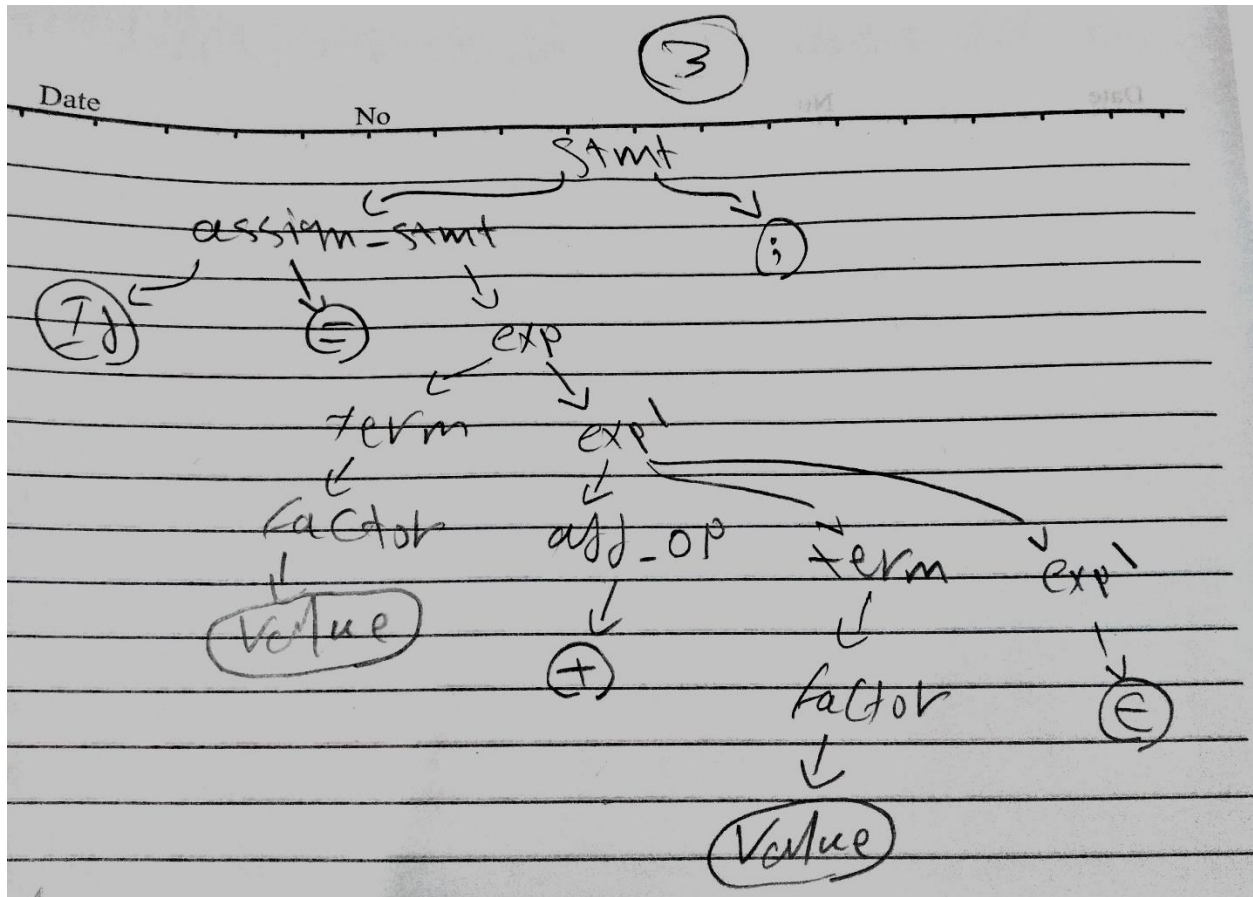 3
Date No
stmt
assign_stmt ;
Id =
exp
term exp'
factor add_op term exp'
Value + factor ε
Value